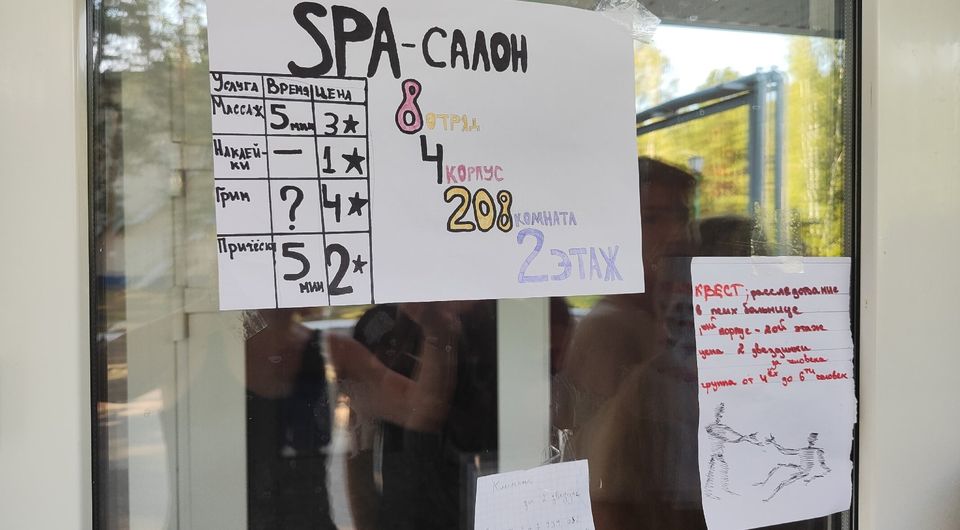 SPA-САЛОН
УСЛУГА ВРЕМЯ ЦЕНА
МАССАЖ 5 МИН 3★
НАКЛЕЙ-
КИ — 1★
ГРИМ ? 4★
ПРИЧЁСКА 5 МИН 2★
8 ОТРЯД
4 КОРПУС
208 КОМНАТА
2 ЭТАЖ
КВЕСТ, расследование
в псих больнице
корпус - 2ой этаж
цена 2 звездочки
за человека
группа от 4ёх до 6ти человек